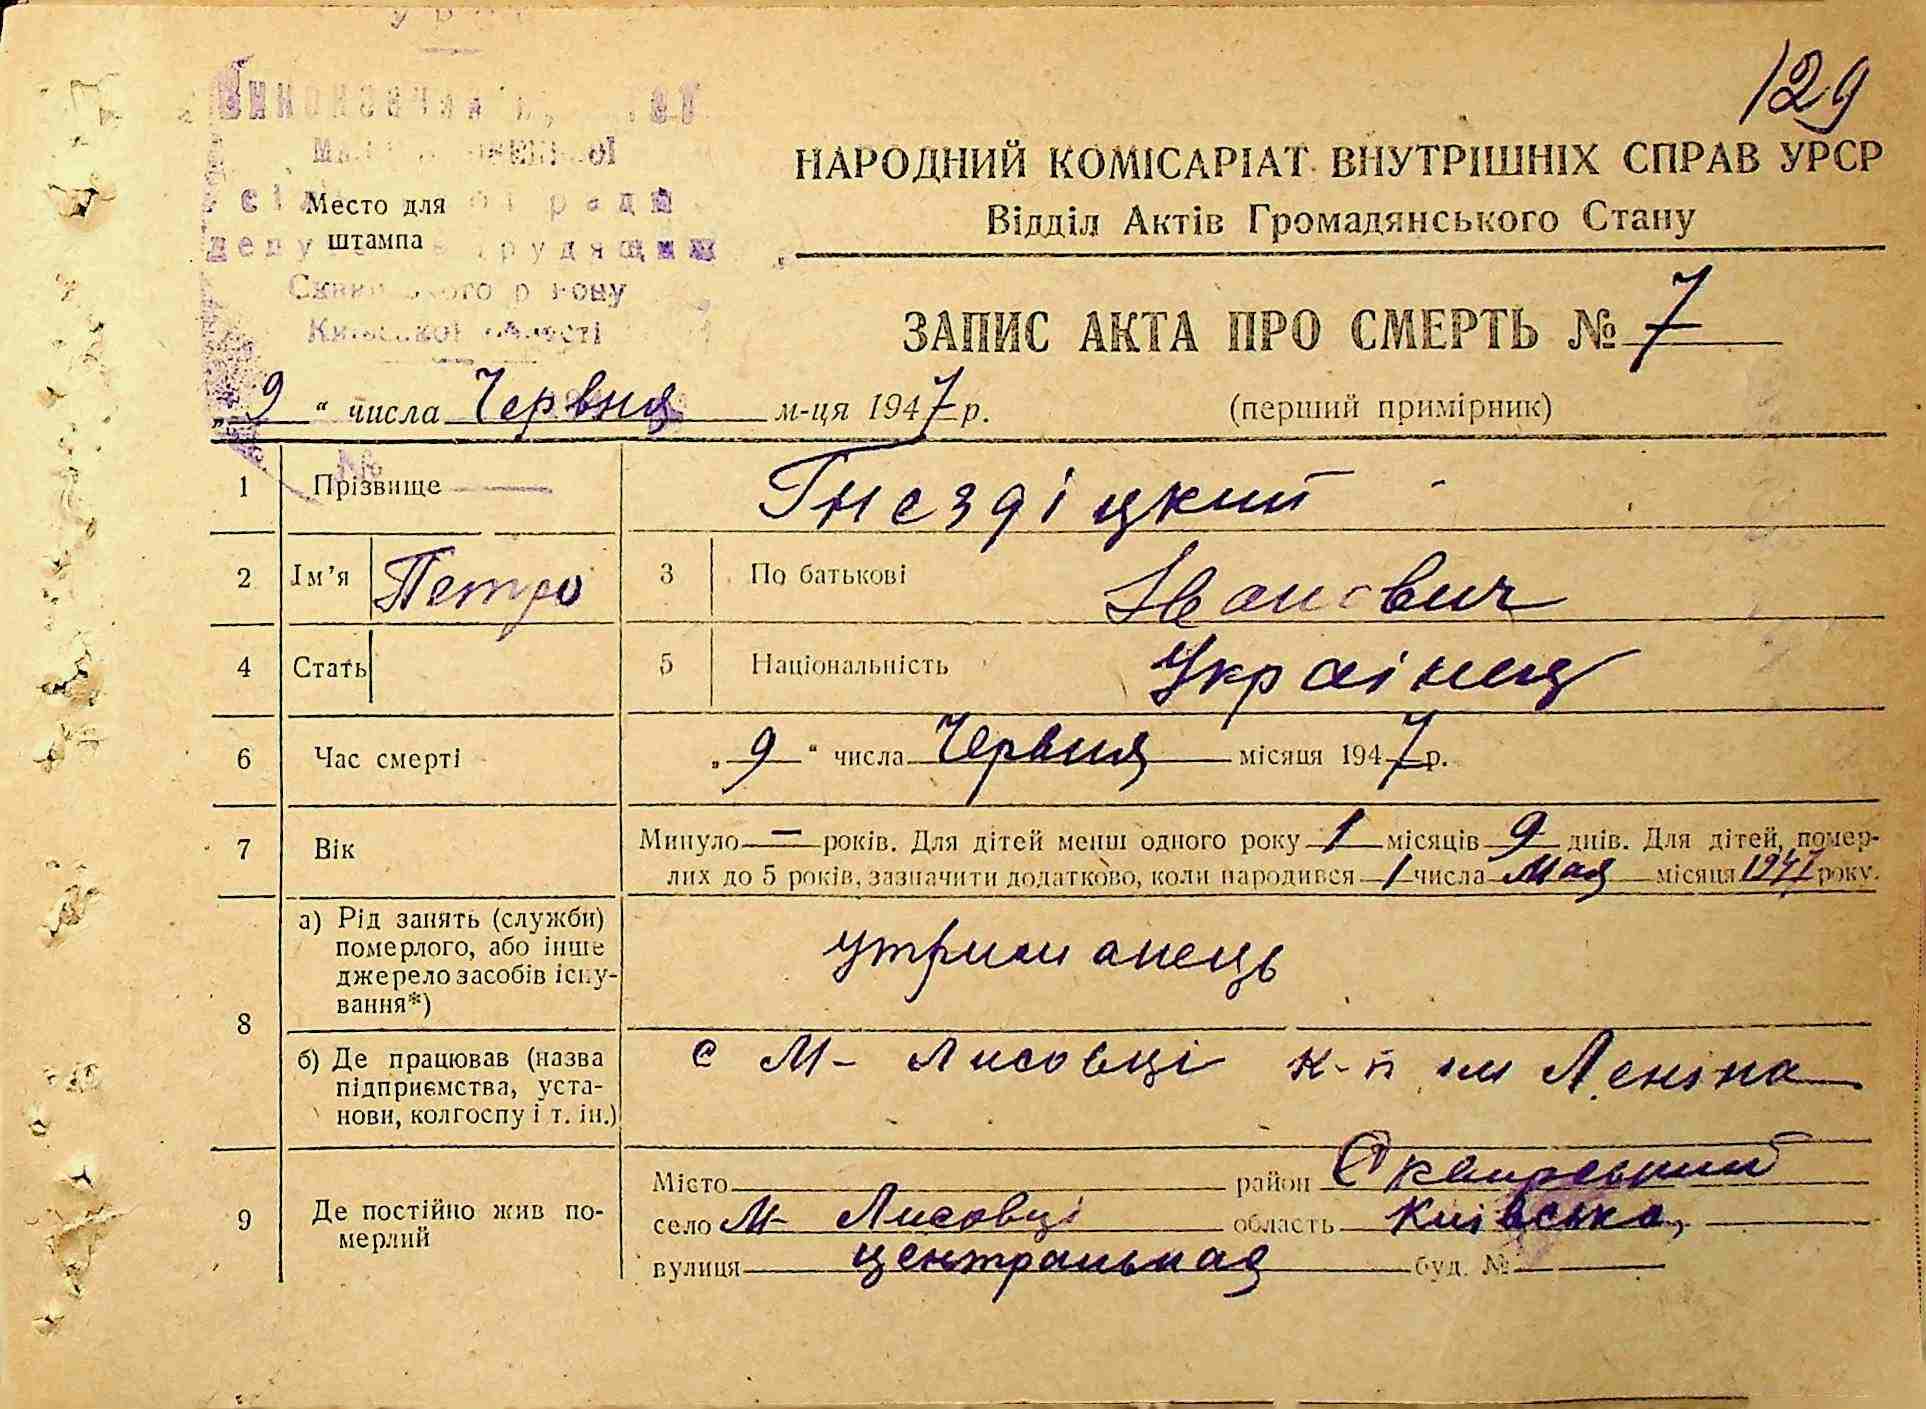 129
Место для
штампа
НАРОДНИЙ КОМІСАРІАТ ВНУТРІШНІХ СПРАВ УРСР
Відділ Актів Громадянського Стану
ЗАПИС АКТА ПРО СМЕРТЬ № 7
„9“ числа Червня м-ця 1947 р.
(перший примірник)
1 Прізвище Гнєздіцкий
2 Ім’я Петро 3 По батькові Іванович
4 Стать 5 Національність Українец
6 Час смерті „9“ числа Червня місяця 1947 р.
7 Вік Минуло — років. Для дітей менш одного року 1 місяців 9 днів. Для дітей, помер-
лих до 5 років, зазначити додатково, коли народився 1 числа Мая місяця 1947 року.
8 а) Рід занять (служби)
померлого, або інше
джерело засобів існу-
вання*)
утриманець
б) Де працював (назва
підприємства, уста-
нови, колгоспу і т. ін.)
с М- Лисовці к-п ім Леніна
9 Де постійно жив по-
мерлий
Місто район Сквирський
село М- Лисовці область Київська,
вулиця центральная буд. №